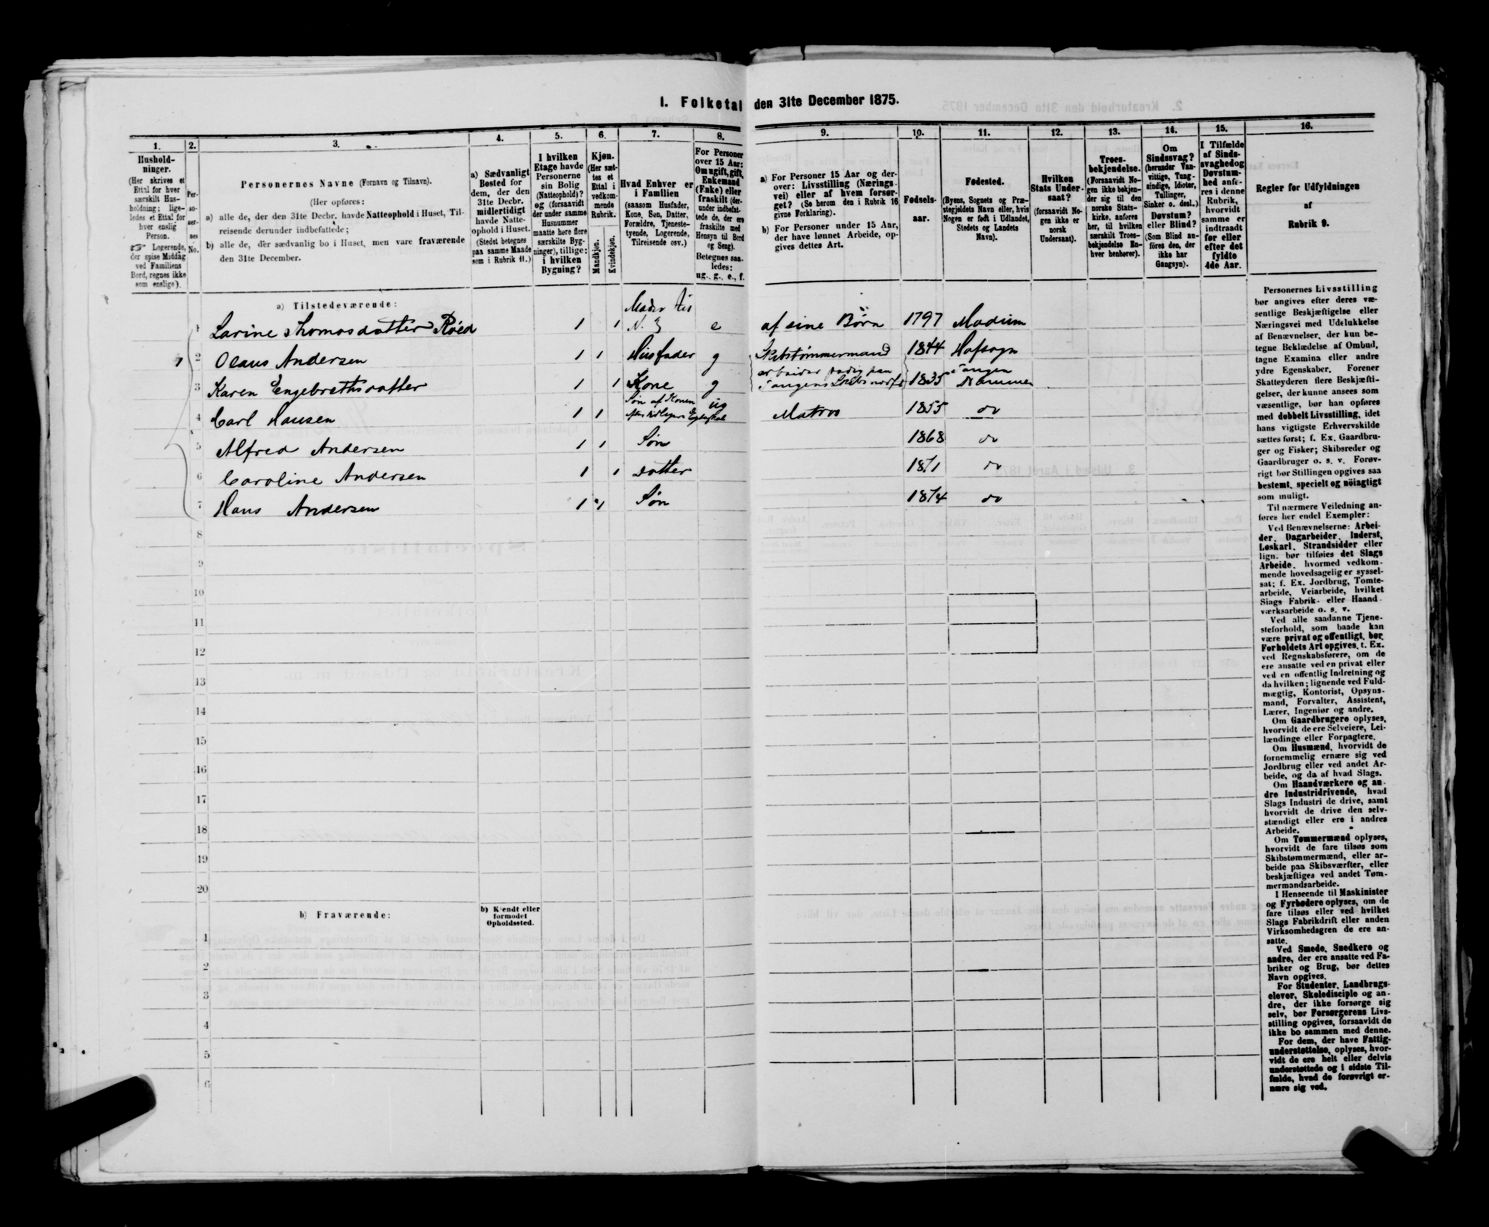 1. Folketal den 31te December 1875.
1.
Hushold-
ninger.
(Her skrives et
Ettal for hver
særskilt Hus-
holdning; lige-
ledes et Ettal for
hver enslig
Person.
☞ Logerende,
der spise Middag
ved Familiens
Bord, regnes ikke
som enslige).
2.
Per-
so-
ner-
nes
No.
3.
Personernes Navne (Fornavn og Tilnavn).
(Her opføres:
a) alle de, der den 31te Decbr. havde Natteophold i Huset, Til-
reisende derunder indbefattede;
b) alle de, der sædvanlig bo i Huset, men vare fraværende
den 31te December.
4.
a) Sædvanligt
Bosted for
dem, der den
31te Decbr.
midlertidigt
havde Natte-
ophold i Huset.
(Stedet betegnes
paa samme Maade
som i Rubrik 11.)
5.
I hvilken
Etage havde
Personerne
sin Bolig
(Natteophold)?
og (forsaavidt
der under samme
Husnummer
maatte høre flere
særskilte Byg-
ninger), tillige:
i hvilken
Bygning?
6.
Kjøn.
(Her sæt-
tes et
Ettal i
vedkom-
mende
Rubrik.
Mandkjøn.
Kvindekjøn.
7.
Hvad Enhver er
i Familien
(saasom Husfader,
Kone, Søn, Datter,
Forældre, Tjeneste-
tyende, Logerende,
Tilreisende osv.)
8.
For Personer
over 15 Aar:
Om ugift, gift,
Enkemand
(Enke) eller
fraskilt (der-
under indbefat-
tede de, der ere
fraskilte med
Hensyn til Bord
og Seng).
Betegnes saa-
ledes:
ug., g., e., f.
9.
a) For Personer 15 Aar og der-
over: Livsstilling (Nærings-
vei) eller af hvem forsør-
get? (Se herom den i Rubrik 16
givne Forklaring).
b) For Personer under 15 Aar,
der have lønnet Arbeide, op-
gives dettes Art.
10.
Fødsels-
aar.
11.
Fødested.
(Byens, Sognets og Præ-
stegjeldets Navn eller, hvis
Nogen er født i Udlandet,
Stedets og Landets
Navn).
12.
Hvilken
Stats Under-
saat?
(forsaavidt No-
gen ikke er
norsk
Undersaat).
13.
Troes-
bekjendelse.
(Forsaavidt No-
gen ikke bekjen-
der sig til den
norske Stats-
kirke, anføres
her, til hvilken
særskilt Troes-
bekjendelse En-
hver henhører).
14.
Om
Sindssvag?
(herunder Van-
vittige, Tung-
sindige, Idioter,
Tullinger,
Sinker o. desl.)
Døvstum?
eller Blind?
(Som Blind an-
føres den, der
ikke har
Gangsyn).
15.
I Tilfælde
af Sinds-
svaghed og
Døvstum-
hed anfø-
res i denne
Rubrik,
hvorvidt
samme er
indtraadt
før eller
efter det
fyldte
4de Aar.
16.
Regler for Udfyldningen
af
Rubrik 9.
a) Tilstedeværende:
1 Larine Thomasdatter Røed 1 1 Moder til N. 2 e af sine Børn 1797 Modum
1 2 Olaus Andersen 1 1 Husfader g Skibstømmermand 1844 Hafsogn
arbeider stadig paa
3 Karen Engebrethsdatter 1 1 Kone g Tangens Skibsværft 1835 Tangen Drammen
4 Carl Hansen 1 1 Søn af Konen ug Matros 1855 do
5 Alfred Andersen 1 1 Søn 1868 do
6 Caroline Andersen 1 1 Datter 1871 do
7 Hans Andersen 1 1 Søn 1874 do
8
9
10
11
12
13
14
15
16
17
18
19
20
b) Fraværende:
b) Kjendt eller
formodet
Opholdssted.
1
2
3
4
5
6
Personernes Livsstilling
bør angives efter deres væ-
sentlige Beskjæftigelse eller
Næringsvei med Udelukkelse
af Benævnelser, der kun be-
tegne Beklædelse af Ombud,
tagne Examina eller andre
ydre Egenskaber. Forener
Skatteyderen flere Beskjæfti-
gelser, der kunne ansees som
væsentlige, bør han opføres
med dobbelt Livsstilling, idet
hans vigtigste Erhvervskilde
sættes først; f. Ex. Gaardbru-
ger og Fisker; Skibsreder og
Gaardbruger o. s. v. Forøv-
rigt bør Stillingen opgives saa
bestemt, specielt og nøiagtigt
som muligt.
Til nærmere Veiledning an-
føres her endel Exempler:
Ved Benævnelserne: Arbei-
der, Dagarbeider, Inderst,
Løskarl, Strandsidder eller
lign. bør tilføies det Slags
Arbeide, hvormed vedkom-
mende hovedsagelig er syssel-
sat; f. Ex. Jordbrug, Tomte-
arbeide, Veiarbeide, hvilket
Slags Fabrik- eller Haand-
værksarbeide o. s. v.
Ved alle saadanne Tjene-
steforhold, som baade kan
være privat og offentligt, bør
Forholdets Art opgives, t. Ex.
ved Regnskabsførere, om de
ere ansatte ved en privat eller
ved en offentlig Indretning og
da hvilken; lignende ved Fuld-
mægtig, Kontorist, Opsyns-
mand, Forvalter, Assistent,
Lærer, Ingeniør og andre.
Om Gaardbrugere oplyses,
hvorvidt de ere Selveiere, Lei-
lændinge eller Forpagtere.
Om Husmænd, hvorvidt de
fornemmelig ernære sig ved
Jordbrug eller ved andet Ar-
beide, og da af hvad Slags.
Om Haandværkere og an-
dre Industridrivende, hvad
Slags Industri de drive, samt
hvorvidt de drive den selv-
stændigt eller ere i andres
Arbeide.
Om Tømmermænd oplyses,
hvorvidt de fare tilsøs som
Skibstømmermænd, eller ar-
beide paa Skibsværfter, eller
beskjæftiges ved andet Tøm-
mermandsarbeide.
I Henseende til Maskinister
og Fyrbødere oplyses, om de
fare tilsøs eller ved hvilket
Slags Fabrikdrift eller anden
Virksomhedsgren de ere an-
satte.
Ved Smede, Snedkere og
andre, der ere ansatte ved Fa-
briker og Brug, bør dettes
Navn opgives.
For Studenter, Landbrugs-
elever, Skoledisciple og an-
dre, der ikke forsørge sig
selv, bør Forsørgerens Livs-
stilling opgives, forsaavidt de
ikke bo sammen med denne.
For dem, der have Fattig-
understøttelse, oplyses, hvor-
vidt de ere helt eller delvis
understøttede og i sidste Til-
fælde, hvad de forøvrigt er-
nære sig ved.